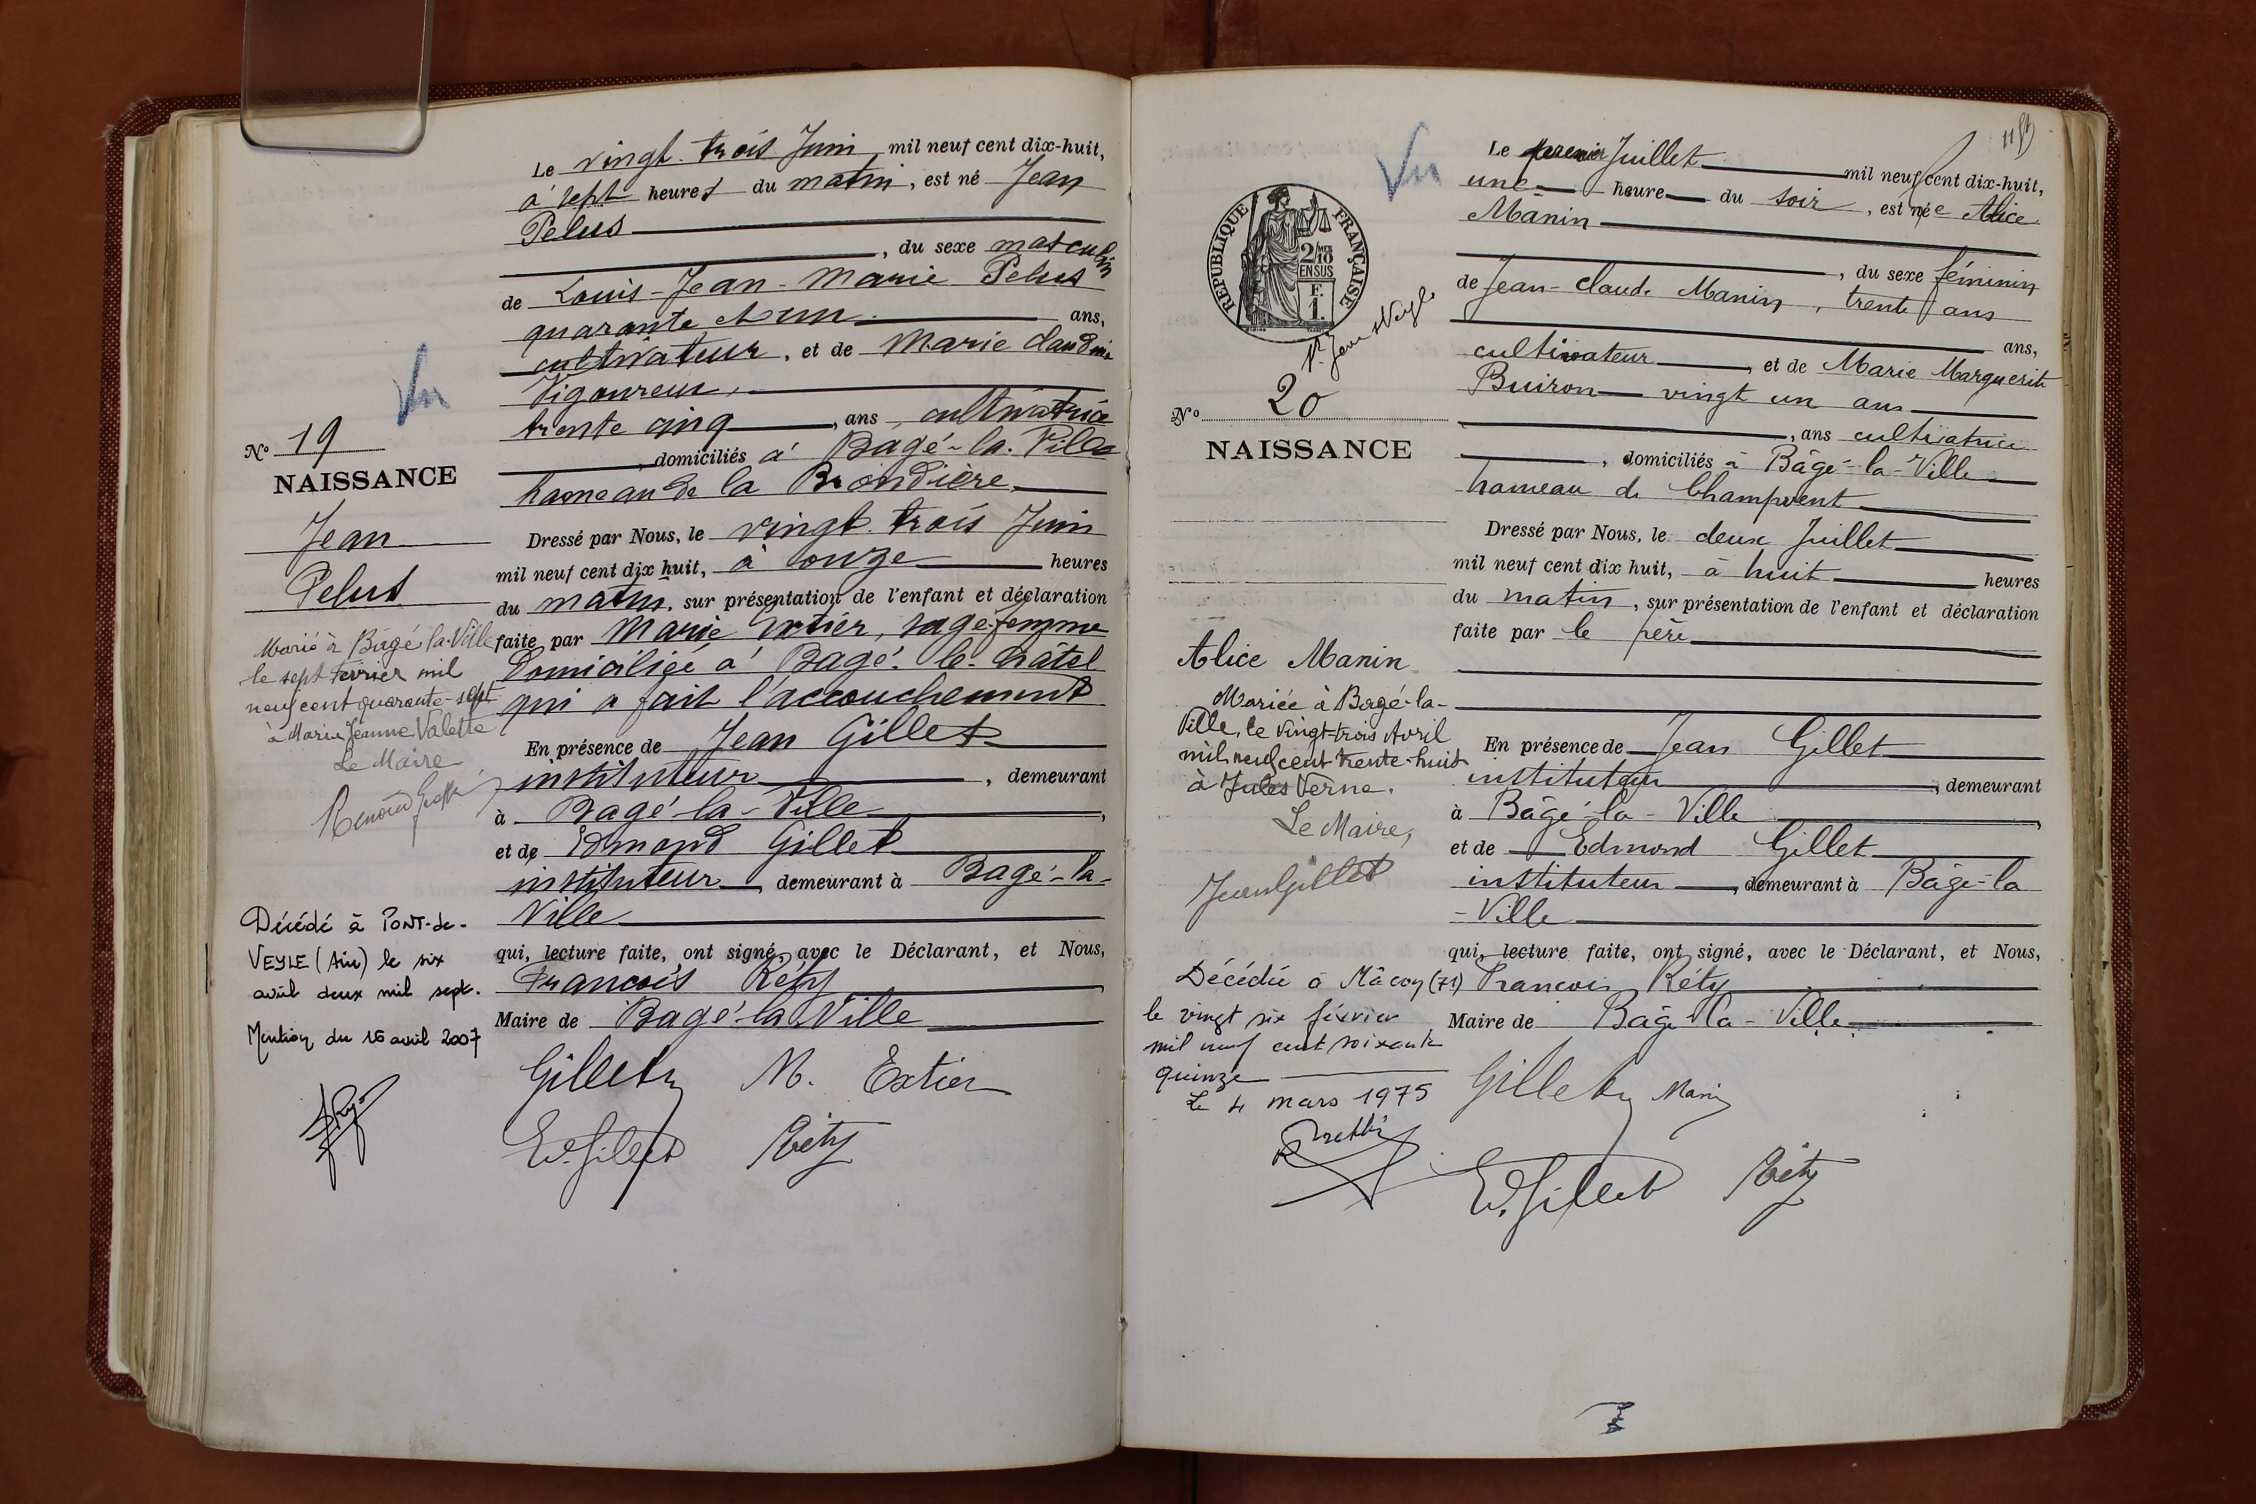 Le vingt trois Juin mil neuf cent dix-huit,
à sept heures du matin, est né Jean
Pelus
, du sexe masculin
de Louis-Jean-Marie Pelus
quarante et un ans,
cultivateur, et de Marie Claudine
Vigoureux,
trente cinq, ans, cultivatrice
, domiciliés à Bagé-la-Ville
hameau de la Brondière.
Dressé par Nous, le vingt trois Juin
mil neuf cent dix huit, à onze heures
du matin, sur présentation de l'enfant et déclaration
faite par Marie Extier, sage-femme
domiciliée à Bagé-le-Châtel
qui a fait l'accouchement
En présence de Jean Gillet
instituteur, demeurant
à Bagé-la-Ville,
et de Edmond Gillet
instituteur, demeurant à Bagé-la-
Ville
qui, lecture faite, ont signé, avec le Déclarant, et Nous,
François Réty
Maire de Bagé-la-Ville
Gillet M. Extier
Ed. Gillet Réty
Vu
No 19
NAISSANCE
Jean
Pelus
Marié à Bâgé-la-Ville
le sept février mil
neuf cent quarante-sept
à Marie Jeanne Valette
Le Maire
Décédé à PONT-de-
VEYLE (Ain) le six
avril deux mil sept.
Mention du 16 avril 2007
Vu
Le premier Juillet mil neuf cent dix-huit,
une heure du soir, est née Alice
Manin
, du sexe féminin
de Jean-Claude Manin, trente ans
ans,
cultivateur, et de Marie Marguerite
Buiron vingt un ans
, ans cultivatrice
, domiciliés à Bâgé-la-Ville
hameau de Champvent
Dressé par Nous, le deux Juillet
mil neuf cent dix huit, à huit heures
du matin, sur présentation de l'enfant et déclaration
faite par le père
En présence de Jean Gillet
instituteur, demeurant
à Bâgé-la-Ville,
et de Edmond Gillet
instituteur, demeurant à Bâgé-la
-Ville
qui, lecture faite, ont signé, avec le Déclarant, et Nous,
François Réty
Maire de Bâgé-la-Ville
Gillet Manin
Ed. Gillet Réty
RÉPUBLIQUE FRANÇAISE
2/10
EN SUS
F.
1.
No 20
NAISSANCE
Alice Manin
Mariée à Bagé-la-
Ville, le vingt-trois Avril
mil neuf cent trente-huit
à Jules Verne.
Le Maire,
Jean Gillet
Décédée à Mâcon (71)
le vingt six février
mil neuf cent soixante
quinze
Le 4 mars 1975